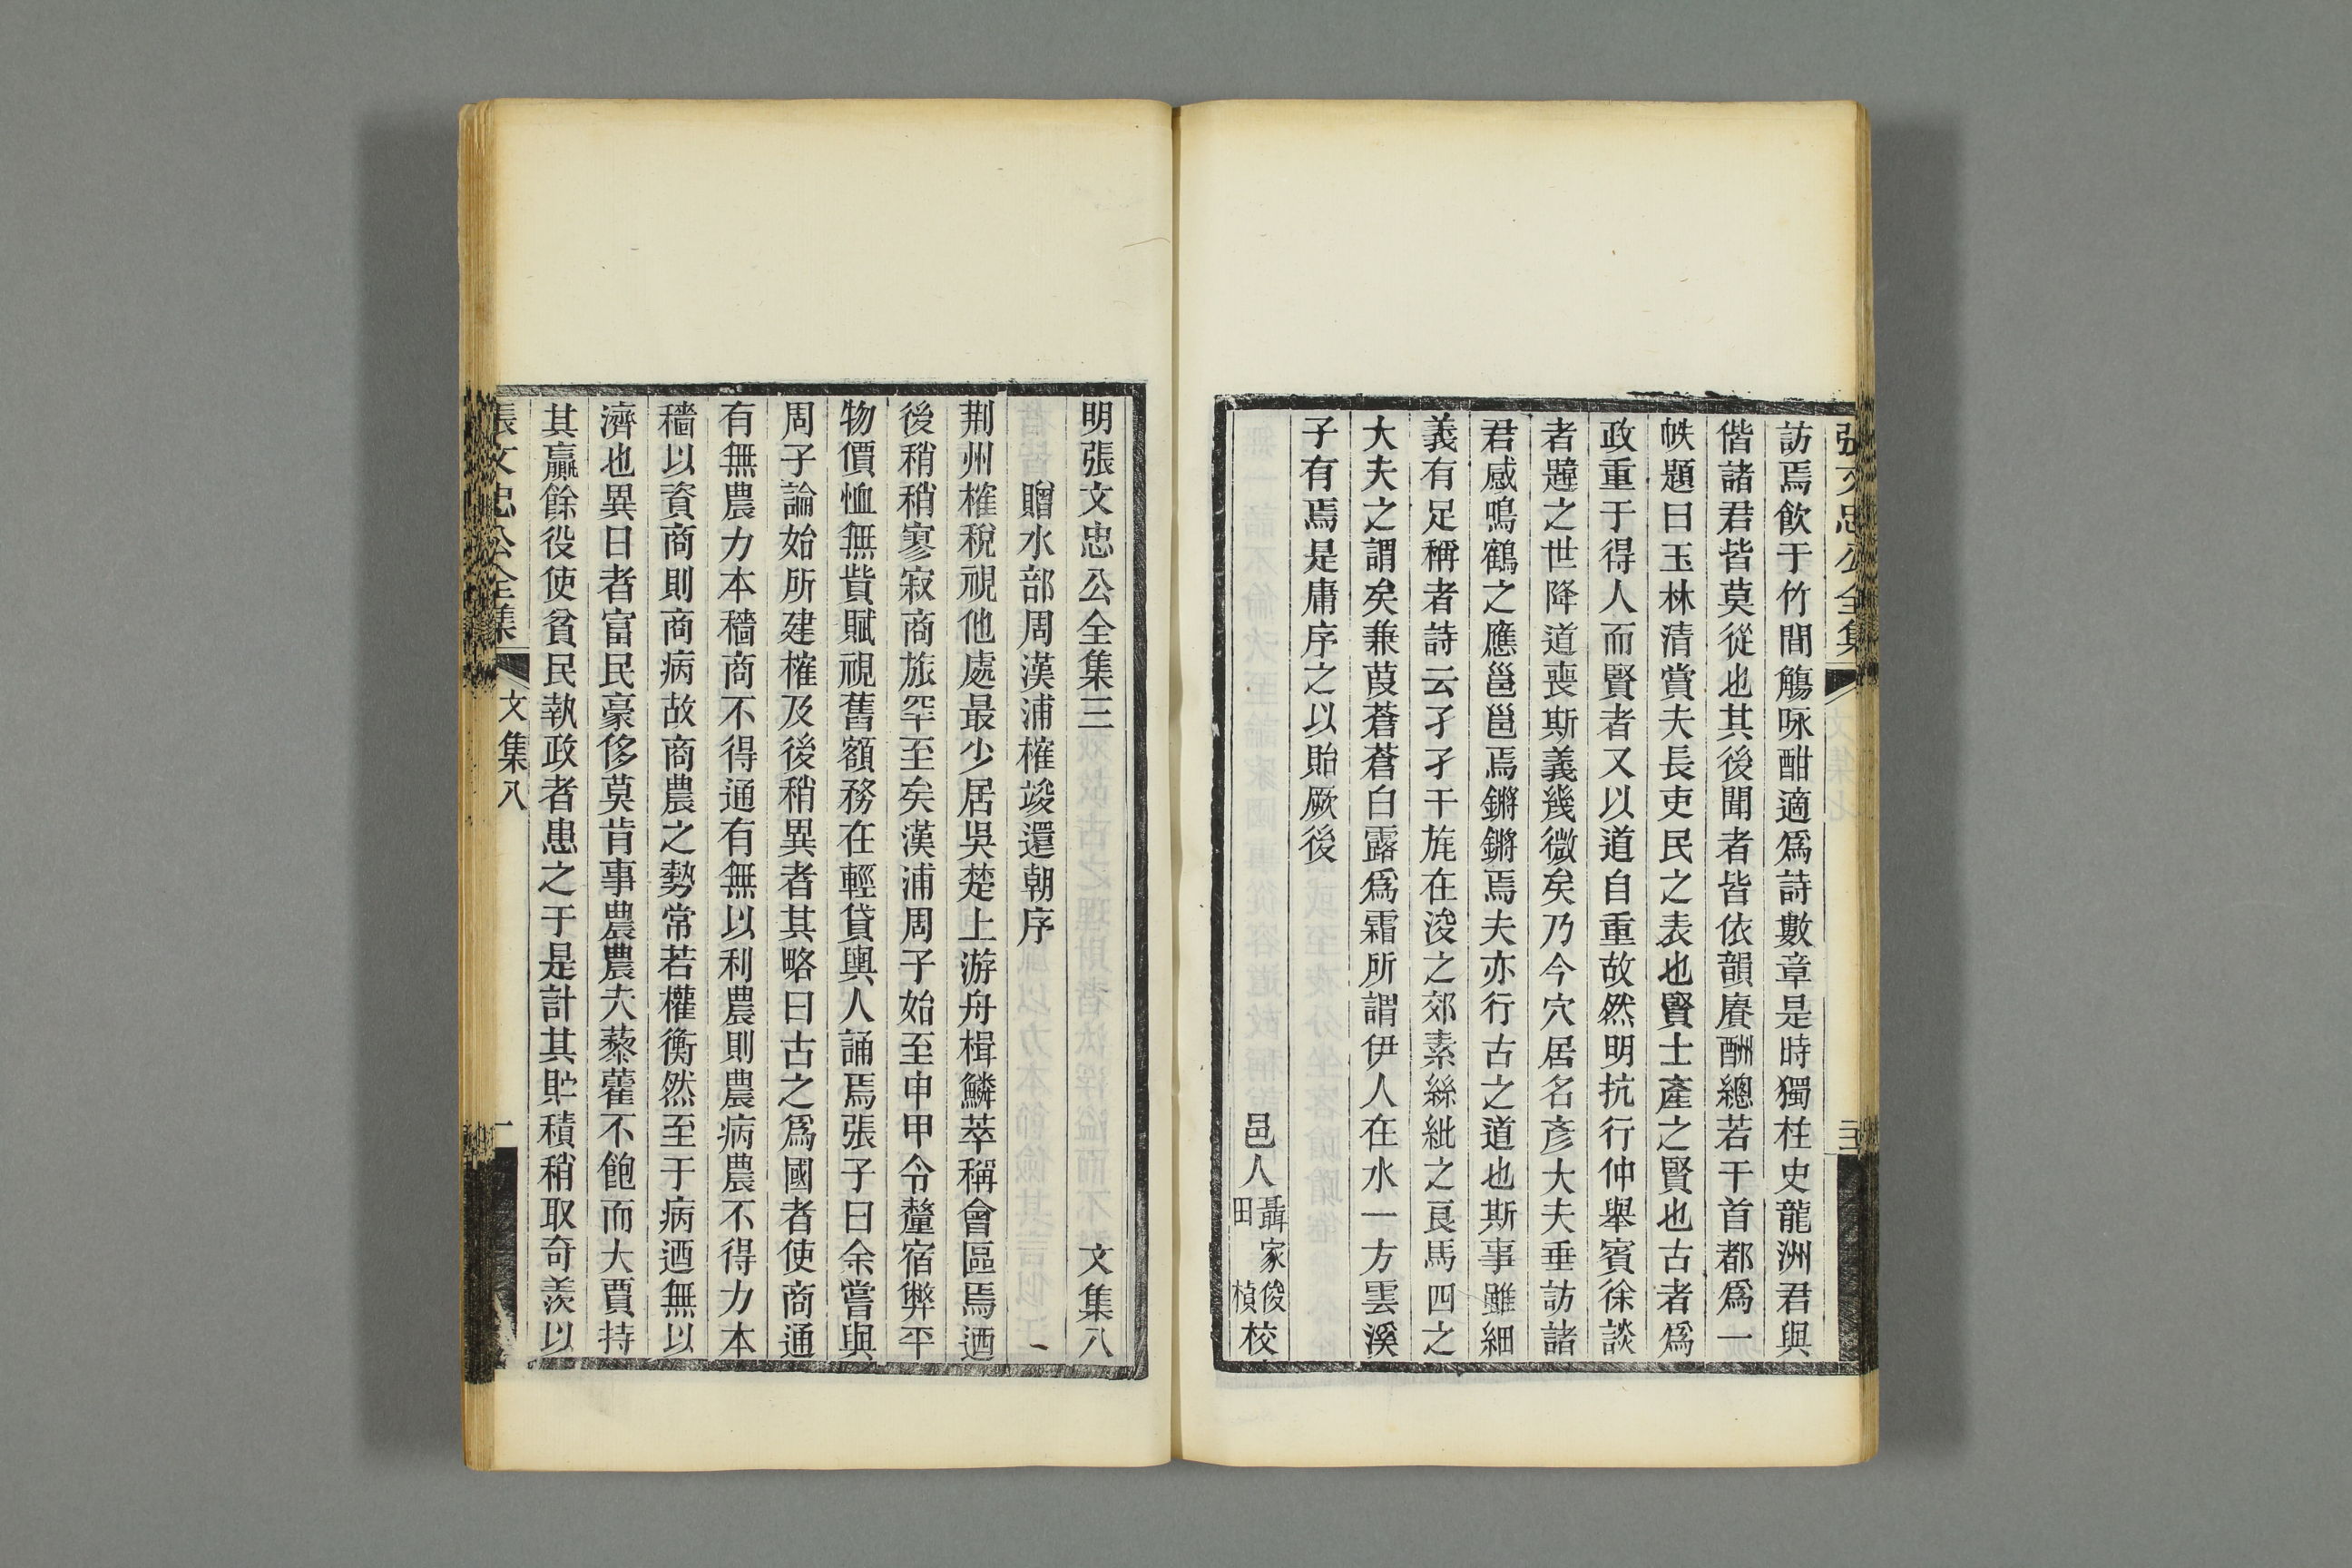 張文忠公全集
訪焉飲于竹間觴咏酣適爲詩數章是時獨柱史龍洲君與
偕諸君皆莫從也其後聞者皆依韻賡酬總若干首都爲一
帙題曰玉林清賞夫長吏民之表也賢士產之賢也古者爲
政重于得人而賢者又以道自重故然明抗行仲舉賓徐談
者韙之世降道喪斯義幾微矣乃今穴居名彥大夫垂訪諸
君感鳴鶴之應邕邕焉鏘鏘焉夫亦行古之道也斯事雖細
義有足稱者詩云孑孑干旄在浚之郊素絲紕之良馬四之
大夫之謂矣蒹葭蒼蒼白露爲霜所謂伊人在水一方雲溪
子有焉是庸序之以貽厥後
邑人聶家俊田楨校
明張文忠公全集三 文集八
贈水部周漢浦榷竣還朝序
荆州榷稅視他處最少居吳楚上游舟楫鱗萃稱會區焉迺
後稍稍寥寂商旅罕至矣漢浦周子始至申甲令釐宿弊平
物價恤無貲賦視舊額務在輕貸輿人誦焉張子曰余嘗與
周子論始所建榷及後稍異者其略曰古之爲國者使商通
有無農力本穡商不得通有無以利農則農病農不得力本
穡以資商則商病故商農之勢常若權衡然至于病迺無以
濟也異日者富民豪侈莫肯事農農夫藜藿不飽而大賈持
其贏餘役使貧民執政者患之于是計其貯積稍取奇羨以
張文忠公全集 文集八 一